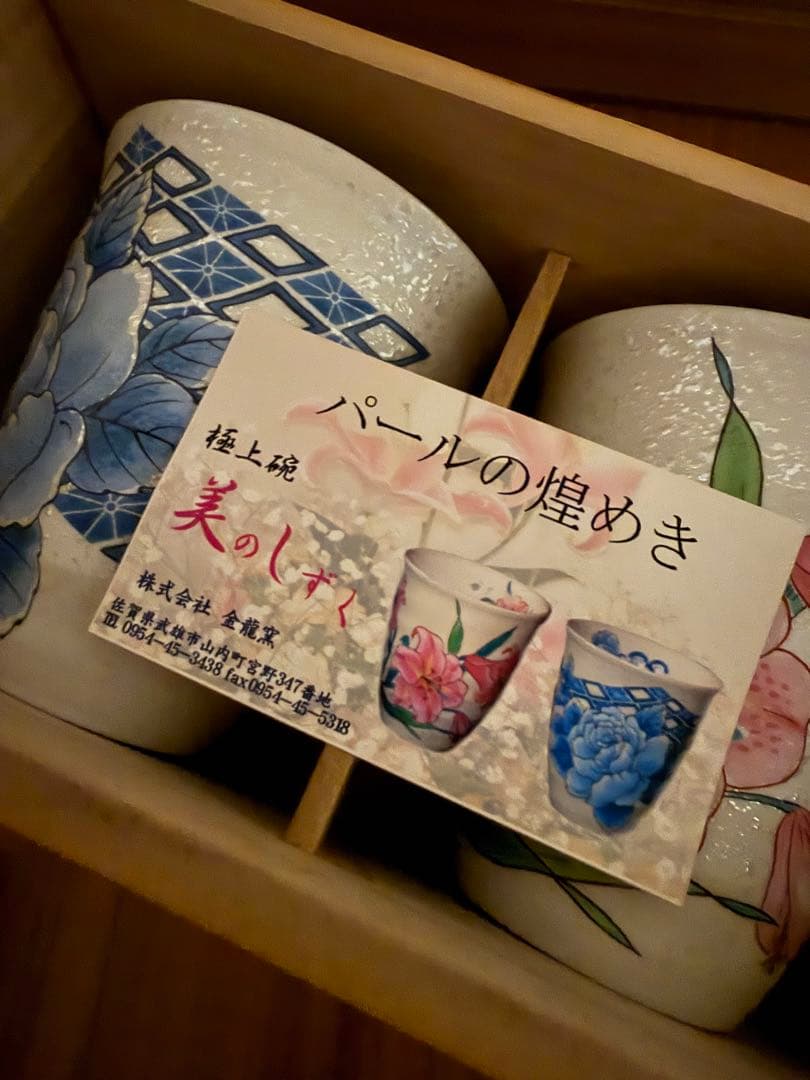 パールの煌めき
極上碗
美のしずく
株式会社 金龍窯
佐賀県武雄市山内町宮野347番地
℡ 0954-45-3438 fax0954-45-5318